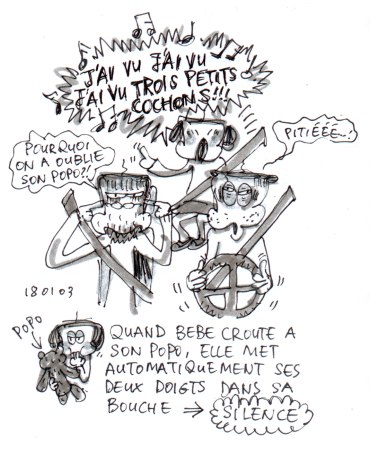 J'AI VU J'AI VU
J'AI VU TROIS PETITS
COCHONS!!!
POURQUOI
ON A OUBLIE
SON POPO?!
PITIÉÉÉ...!
180103
POPO
QUAND BEBE CROUTE A
SON POPO, ELLE MET
AUTOMATIQUEMENT SES
DEUX DOIGTS DANS SA
BOUCHE ⇒ SILENCE